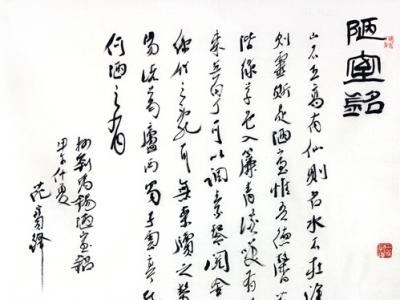 陋室銘
山不在高有仙則名水不在深
則靈斯是陋室惟吾德馨
階綠草色入簾青談笑有
來無白丁可以調素琴閱金
絲竹之亂耳無案牘之勞
陽諸葛廬西蜀子雲亭
何陋之有
劉禹錫陋室銘
甲子仲夏